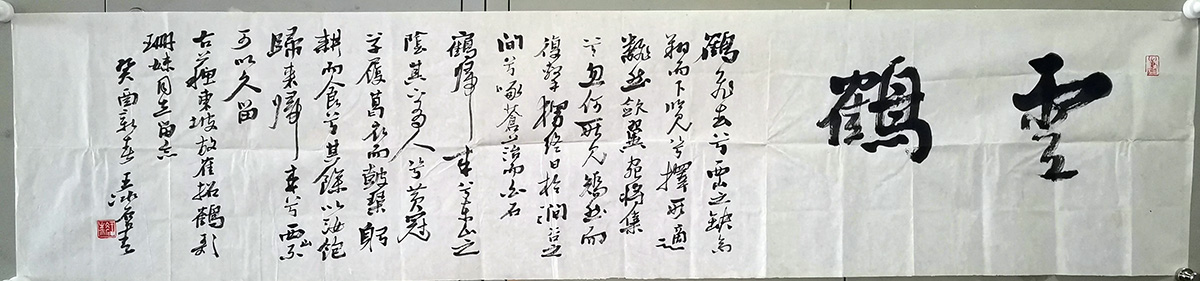 雲鶴
鶴飛去兮西山之缺高
翔而下览兮擇所適
翻然斂翼宛將集
兮忽何所見矯然而
復擊獨終日於澗谷之
間兮啄蒼苔而白石
鶴歸来兮東山之
陰其下有人兮黄冠
草履葛衣而鼓琴躬
耕而食兮其餘以汝飽
歸来歸来兮西山不
可以久留
右蘇東坡放隺招鶴歌
珊妹同志留念
癸酉新春 王